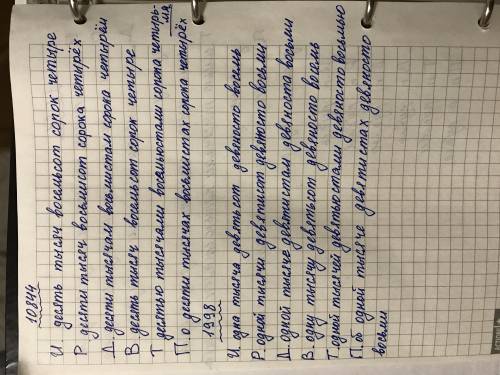 10844
И. десять тысяч восемьсот сорок четыре
Р. десяти тысяч восемисот сорока четырёх
Д. десяти тысячам восьмистам сорока четырём
В. десять тысяч восемьсот сорок четыре
Т. десятью тысячами восемьюстами сорока четырь-
мя
П. о десяти тысячах восьмистах сорока четырёх
1998
И. одна тысяча девятьсот девяносто восемь
Р. одной тысячи девятисот девяносто восьми
Д. одной тысяче девятистам девяноста восьми
В. одну тысячу девятьсот девяносто восемь
Т. одной тысячей девятьюстами девяносто восьмью
П. об одной тысяче девятистах девяносто
восьми